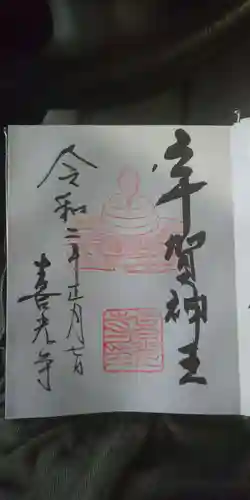 宇賀神王
令和二年正月七日
喜光寺